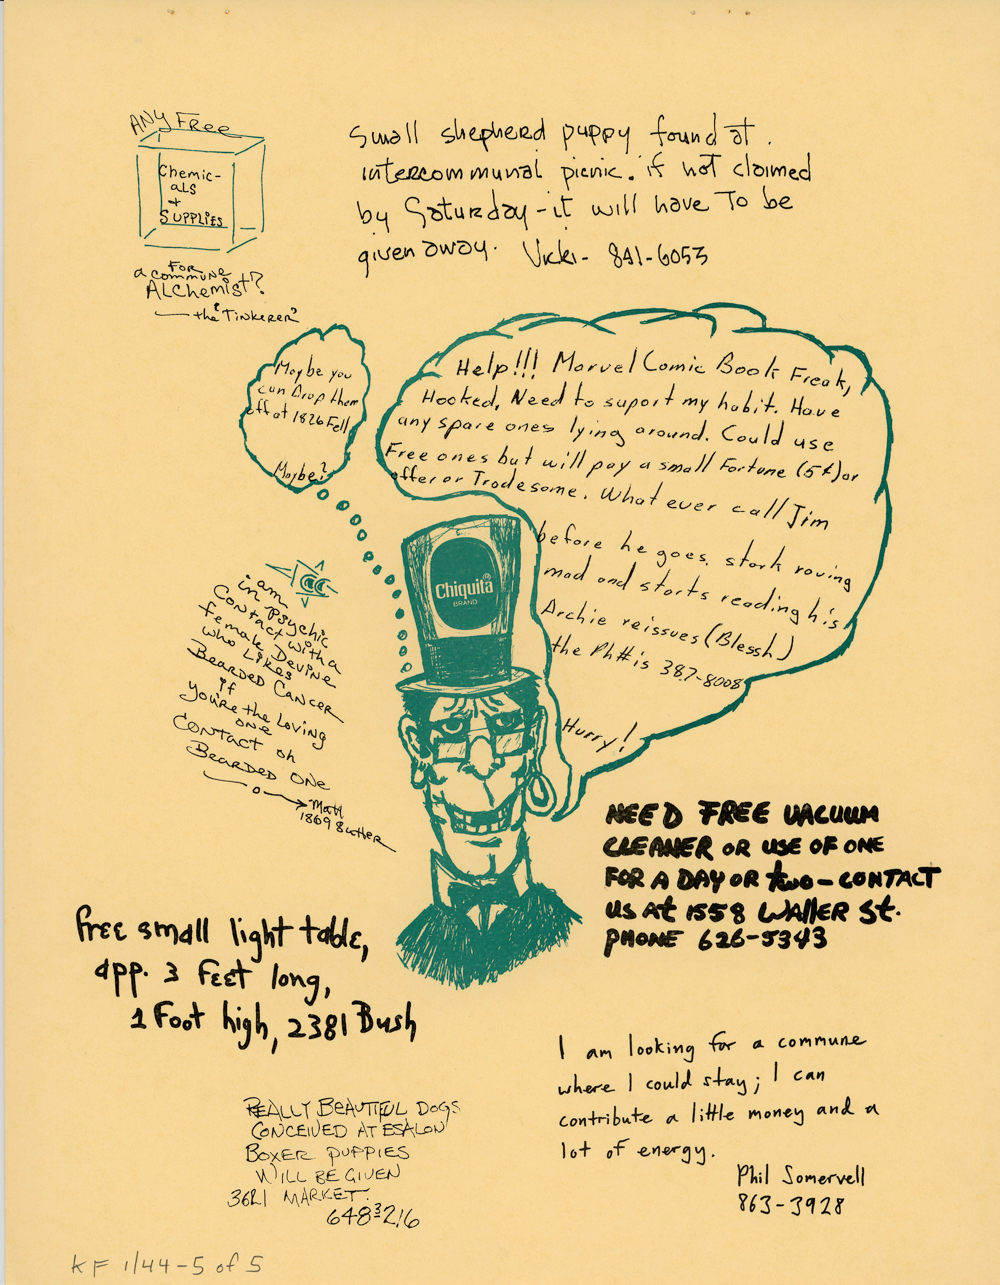 ANY FREE
Chemic-
als
+
SUPPLIES
FOR
a commune
ALCHEMIST?
— the "Tinkerer"
Small shepherd puppy found at
intercommunal picnic. if not claimed
by Saturday - it will have To be
given away. Vicki - 841-6053
Maybe you
can Drop them
off at 1826 Fell
Maybe?
Help!!! Marvel Comic Book Freak,
Hooked, Need to suport my habit. Have
any spare ones lying around. Could use
Free ones but will pay a small Fortune (5¢) or
offer or Tradesome. What ever call Jim
before he goes, stark raving
mad and starts reading his
Archie reissues (Blessh)
the Ph# is 387-8008
Hurry!
Chiquita®
BRAND
I am
in Psychic
Contact with a
female Devine
who Likes
Bearded Cancer
if
you're the Loving
one
Contact oh
Bearded One
Matt
1869 Sutter
NEED FREE VACUUM
CLEANER OR USE OF ONE
FOR A DAY OR two - CONTACT
US At 1558 Waller St.
PHONE 626-5343
free small light table,
app. 3 feet long,
1 Foot high, 2381 Bush
I am looking for a commune
where I could stay; I can
contribute a little money and a
lot of energy.
Phil Somervell
863-3928
REALLY BEAUTIFUL DOGS
CONCEIVED AT ESALON
BOXER PUPPIES
WILL BE GIVEN
3621 MARKET.
648-3216
KF 1/44-5 of 5